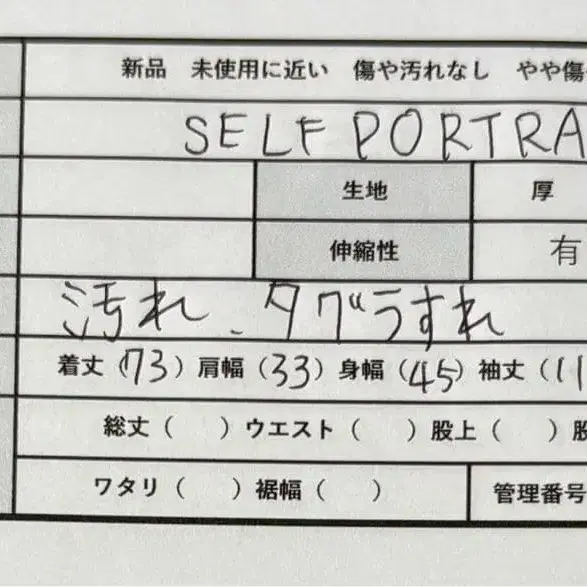 新品 未使用に近い 傷や汚れなし やや傷
SELF PORTRA
生地 厚
伸縮性 有
汚れ、タグうすれ
着丈(73)肩幅(33)身幅(45)袖丈(11
総丈( )ウエスト( )股上( )股
ワタリ( )裾幅( ) 管理番号